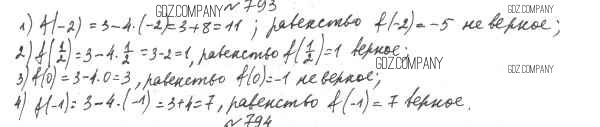 № 793
GDZ.COMPANY
1) f(-2) = 3-4·(-2)=3+8=11; равенство f(-2)=-5 неверное;
GDZ.COMPANY
2) f(1/2)=3-4·1/2=3-2=1, равенство f(1/2)=1 верное;
GDZ.COMPANY
GDZ.COMPANY
3) f(0)=3-4·0=3, равенство f(0)=-1 неверное;
4) f(-1)=3-4·(-1)=3+4=7, равенство f(-1)=7 верное.
№ 794